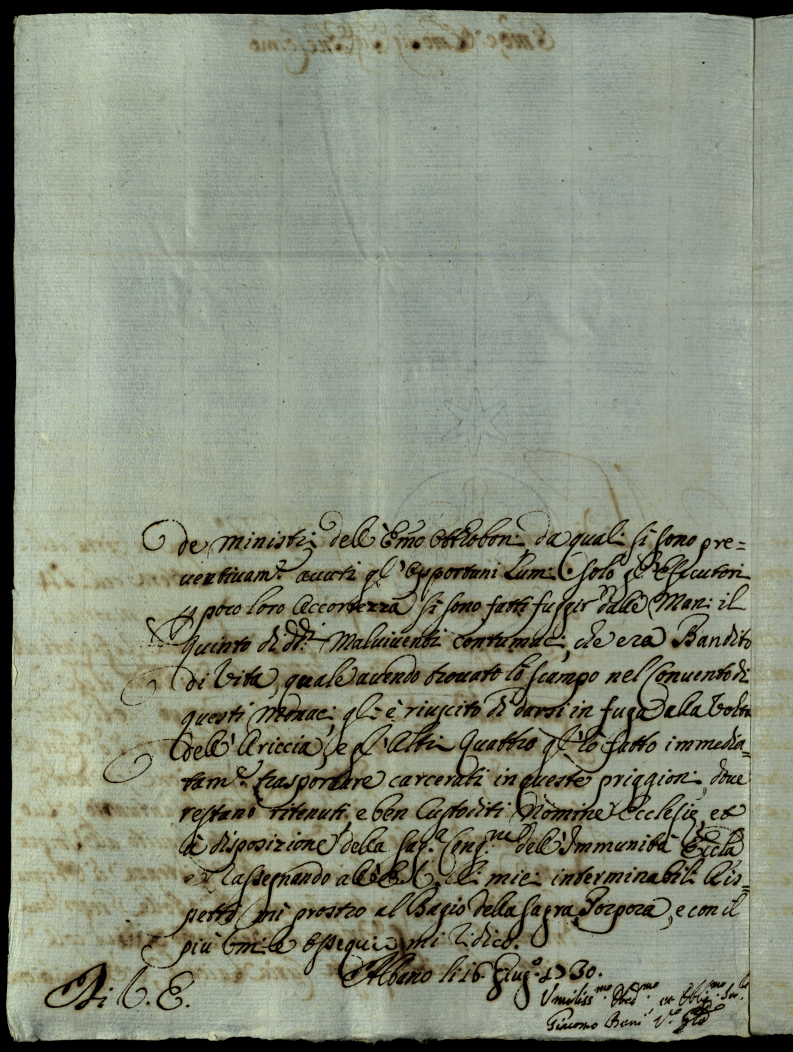 de ministri dell'Emo Ottobon: da quali si sono pre=
ventivam.e avuti gl'opportuni lumi: solo gl'Essecutori
p poco loro accortezza si sono fatti fuggir dalle Mani il
quinto di dd.i Malviventi contumaci, che era Bandito
di Vita, quale avendo trovato lo scampo nel Convento di
questi Monaci gl'è riuscito di darsi in fuga alla Volta
dell'Ariccia, e gl'Altri quattro gl'ho fatto immedia=
tam.e trasportare carcerati in queste priggioni, dove
restano ritenuti, e ben custoditi Nomine Ecclesie, et
à disposizione della Sag.a Cong.ne dell'Immunità Eccla
Rassegnando all'E.V. li miei interminabili Ris=
petti mi prostro al Bagio della Sagra Porpora, e con il
più umile ossequio mi ridico.
Albano li 16 Giug.o 1730.
Di V. E.
Umiliss.mo Dev.mo et Obblig.mo Ser.re
Giacomo V.o